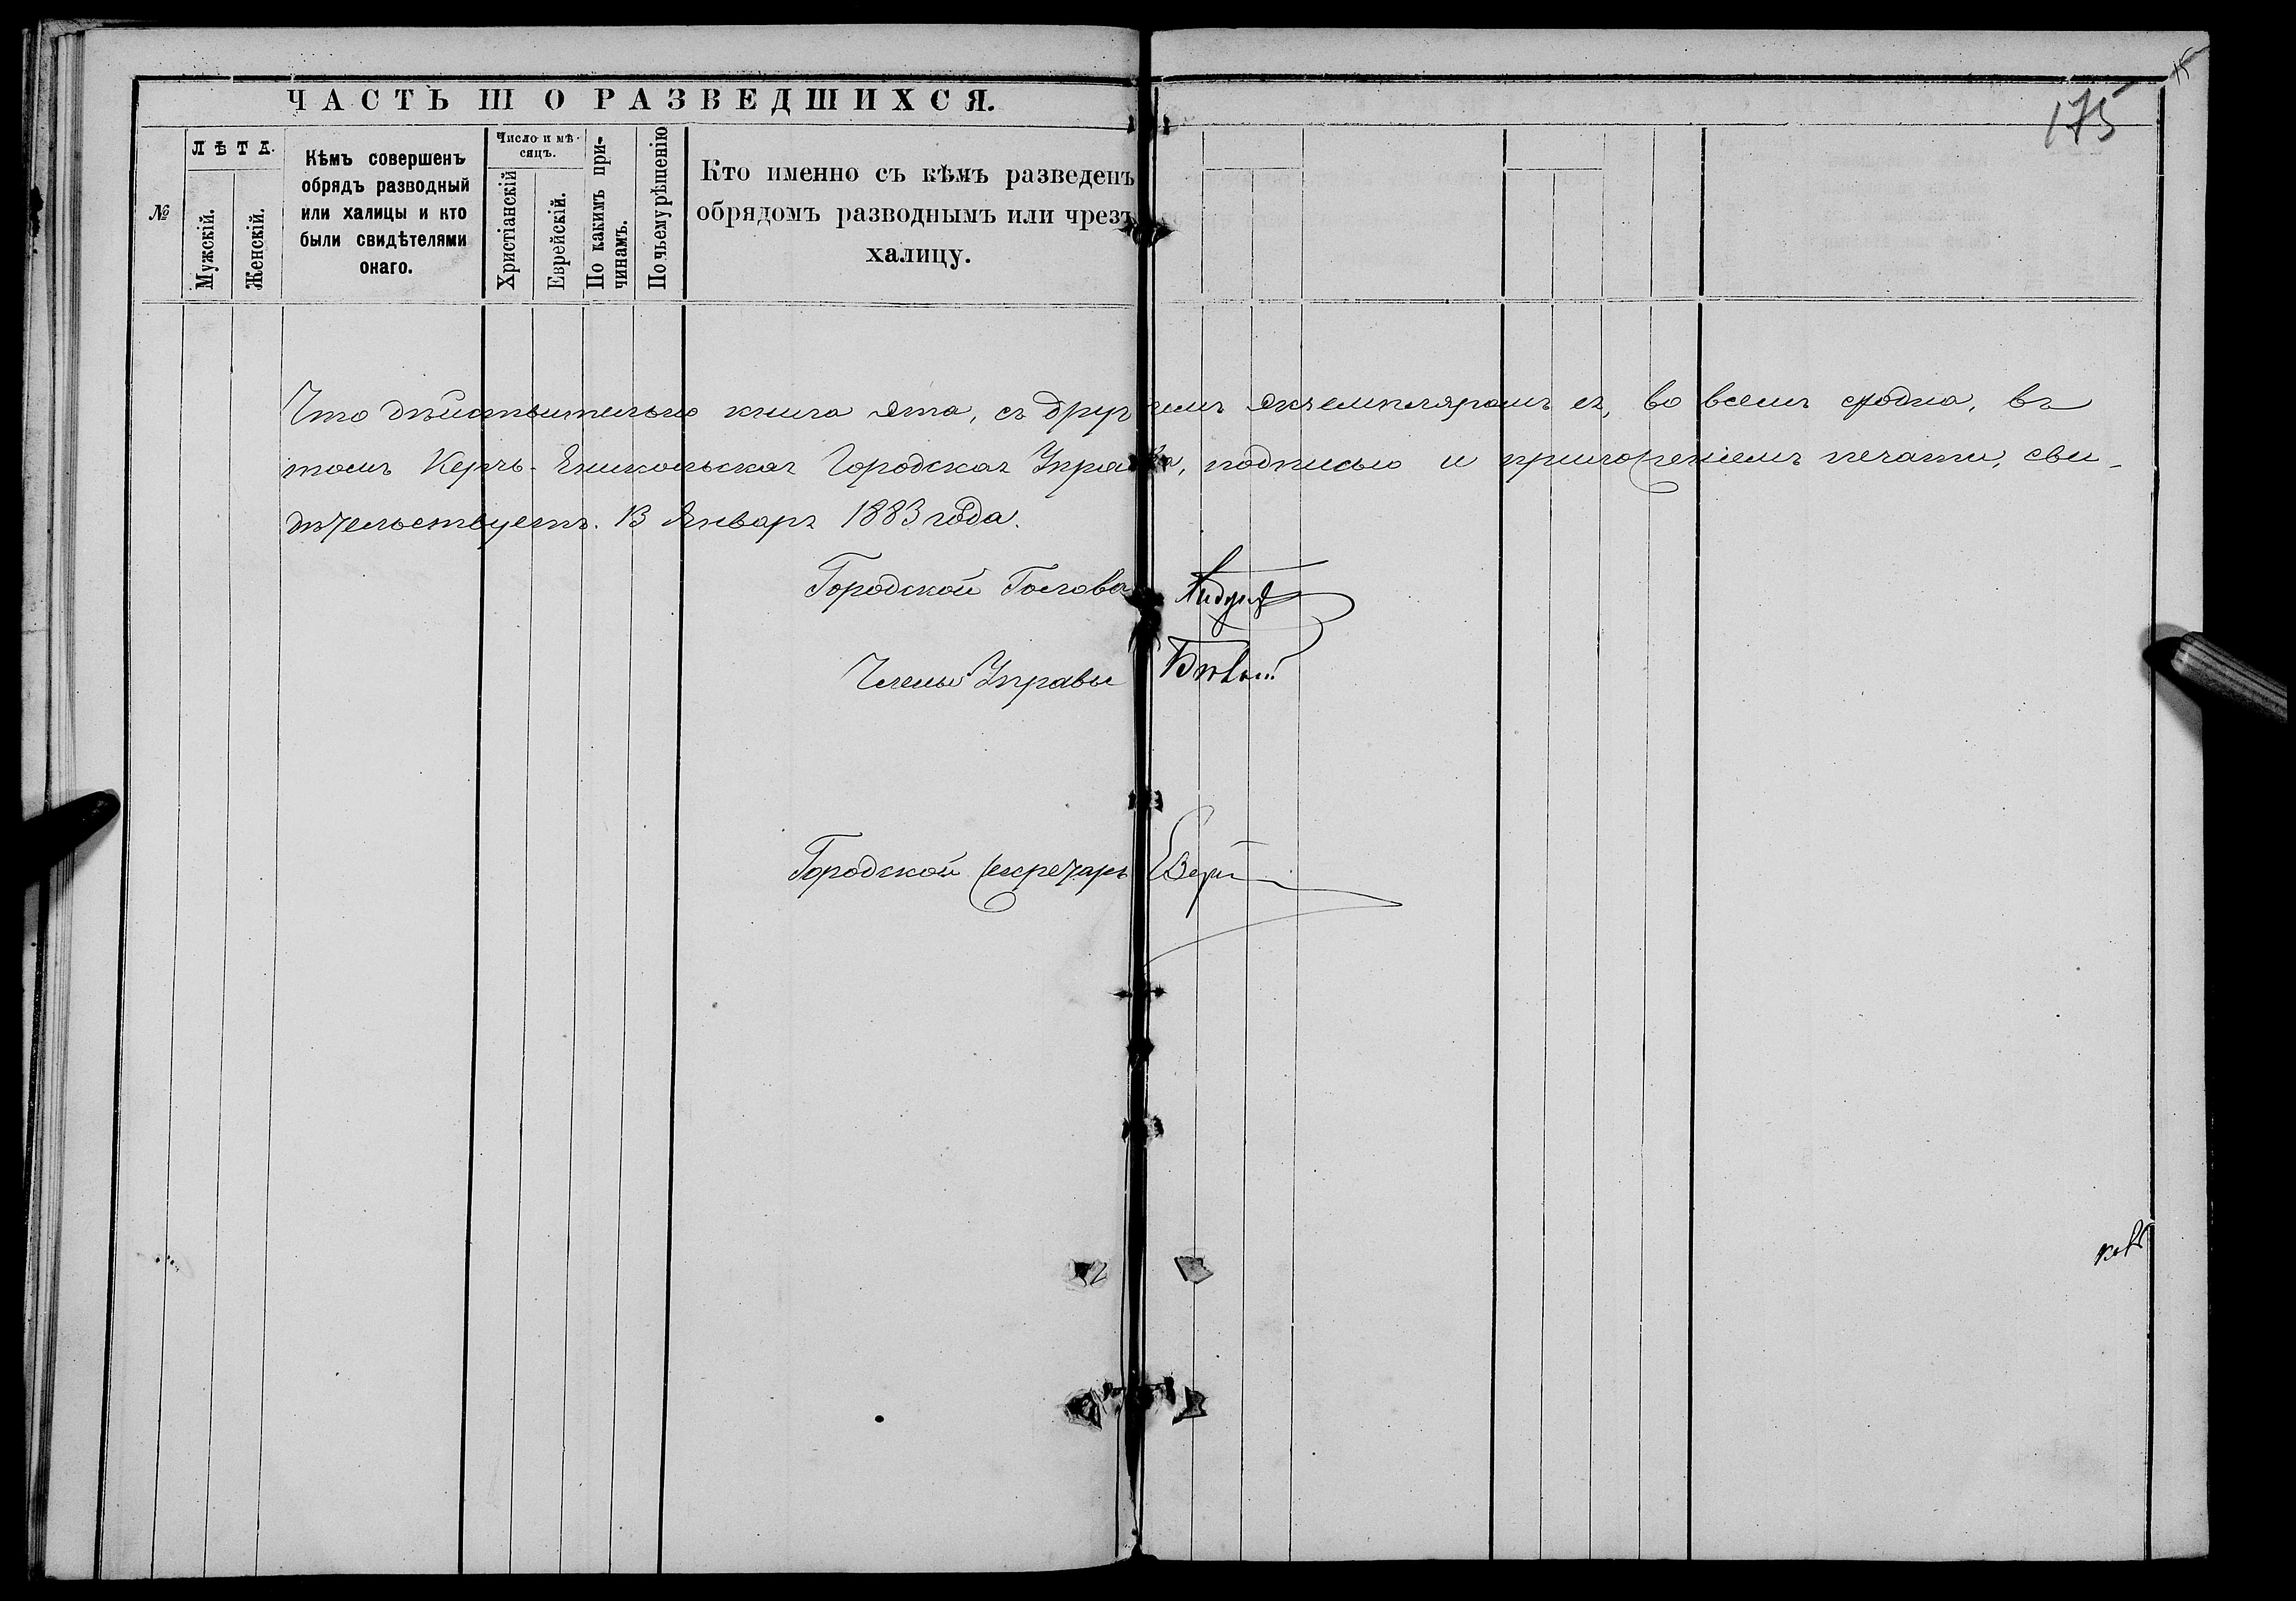 ЧАСТЬ III О РАЗВЕДШИХСЯ.
175
15
№
ЛѢТА.
Мужскій.
Женскій.
Кѣмъ совершенъ
обрядъ разводный
или халицы и кто
были свидѣтелями
онаго.
Число и мѣ-
сяцъ.
Христіанскій
Еврейскій.
По какимъ при-
чинамъ.
По чьему рѣшенію
Кто именно съ кѣмъ разведенъ
обрядомъ разводнымъ или чрезъ
халицу.
Что дѣйствительно книга эта, съ другимъ экземпляромъ ея, во всемъ сходна, въ
томъ Керчь-Еникольская Городская Управа, подписью и приложеніемъ печати, сви-
дѣтельствуетъ. 13 Января 1883 года.
Городской Голова
Члены Управы
Городской Секретарь